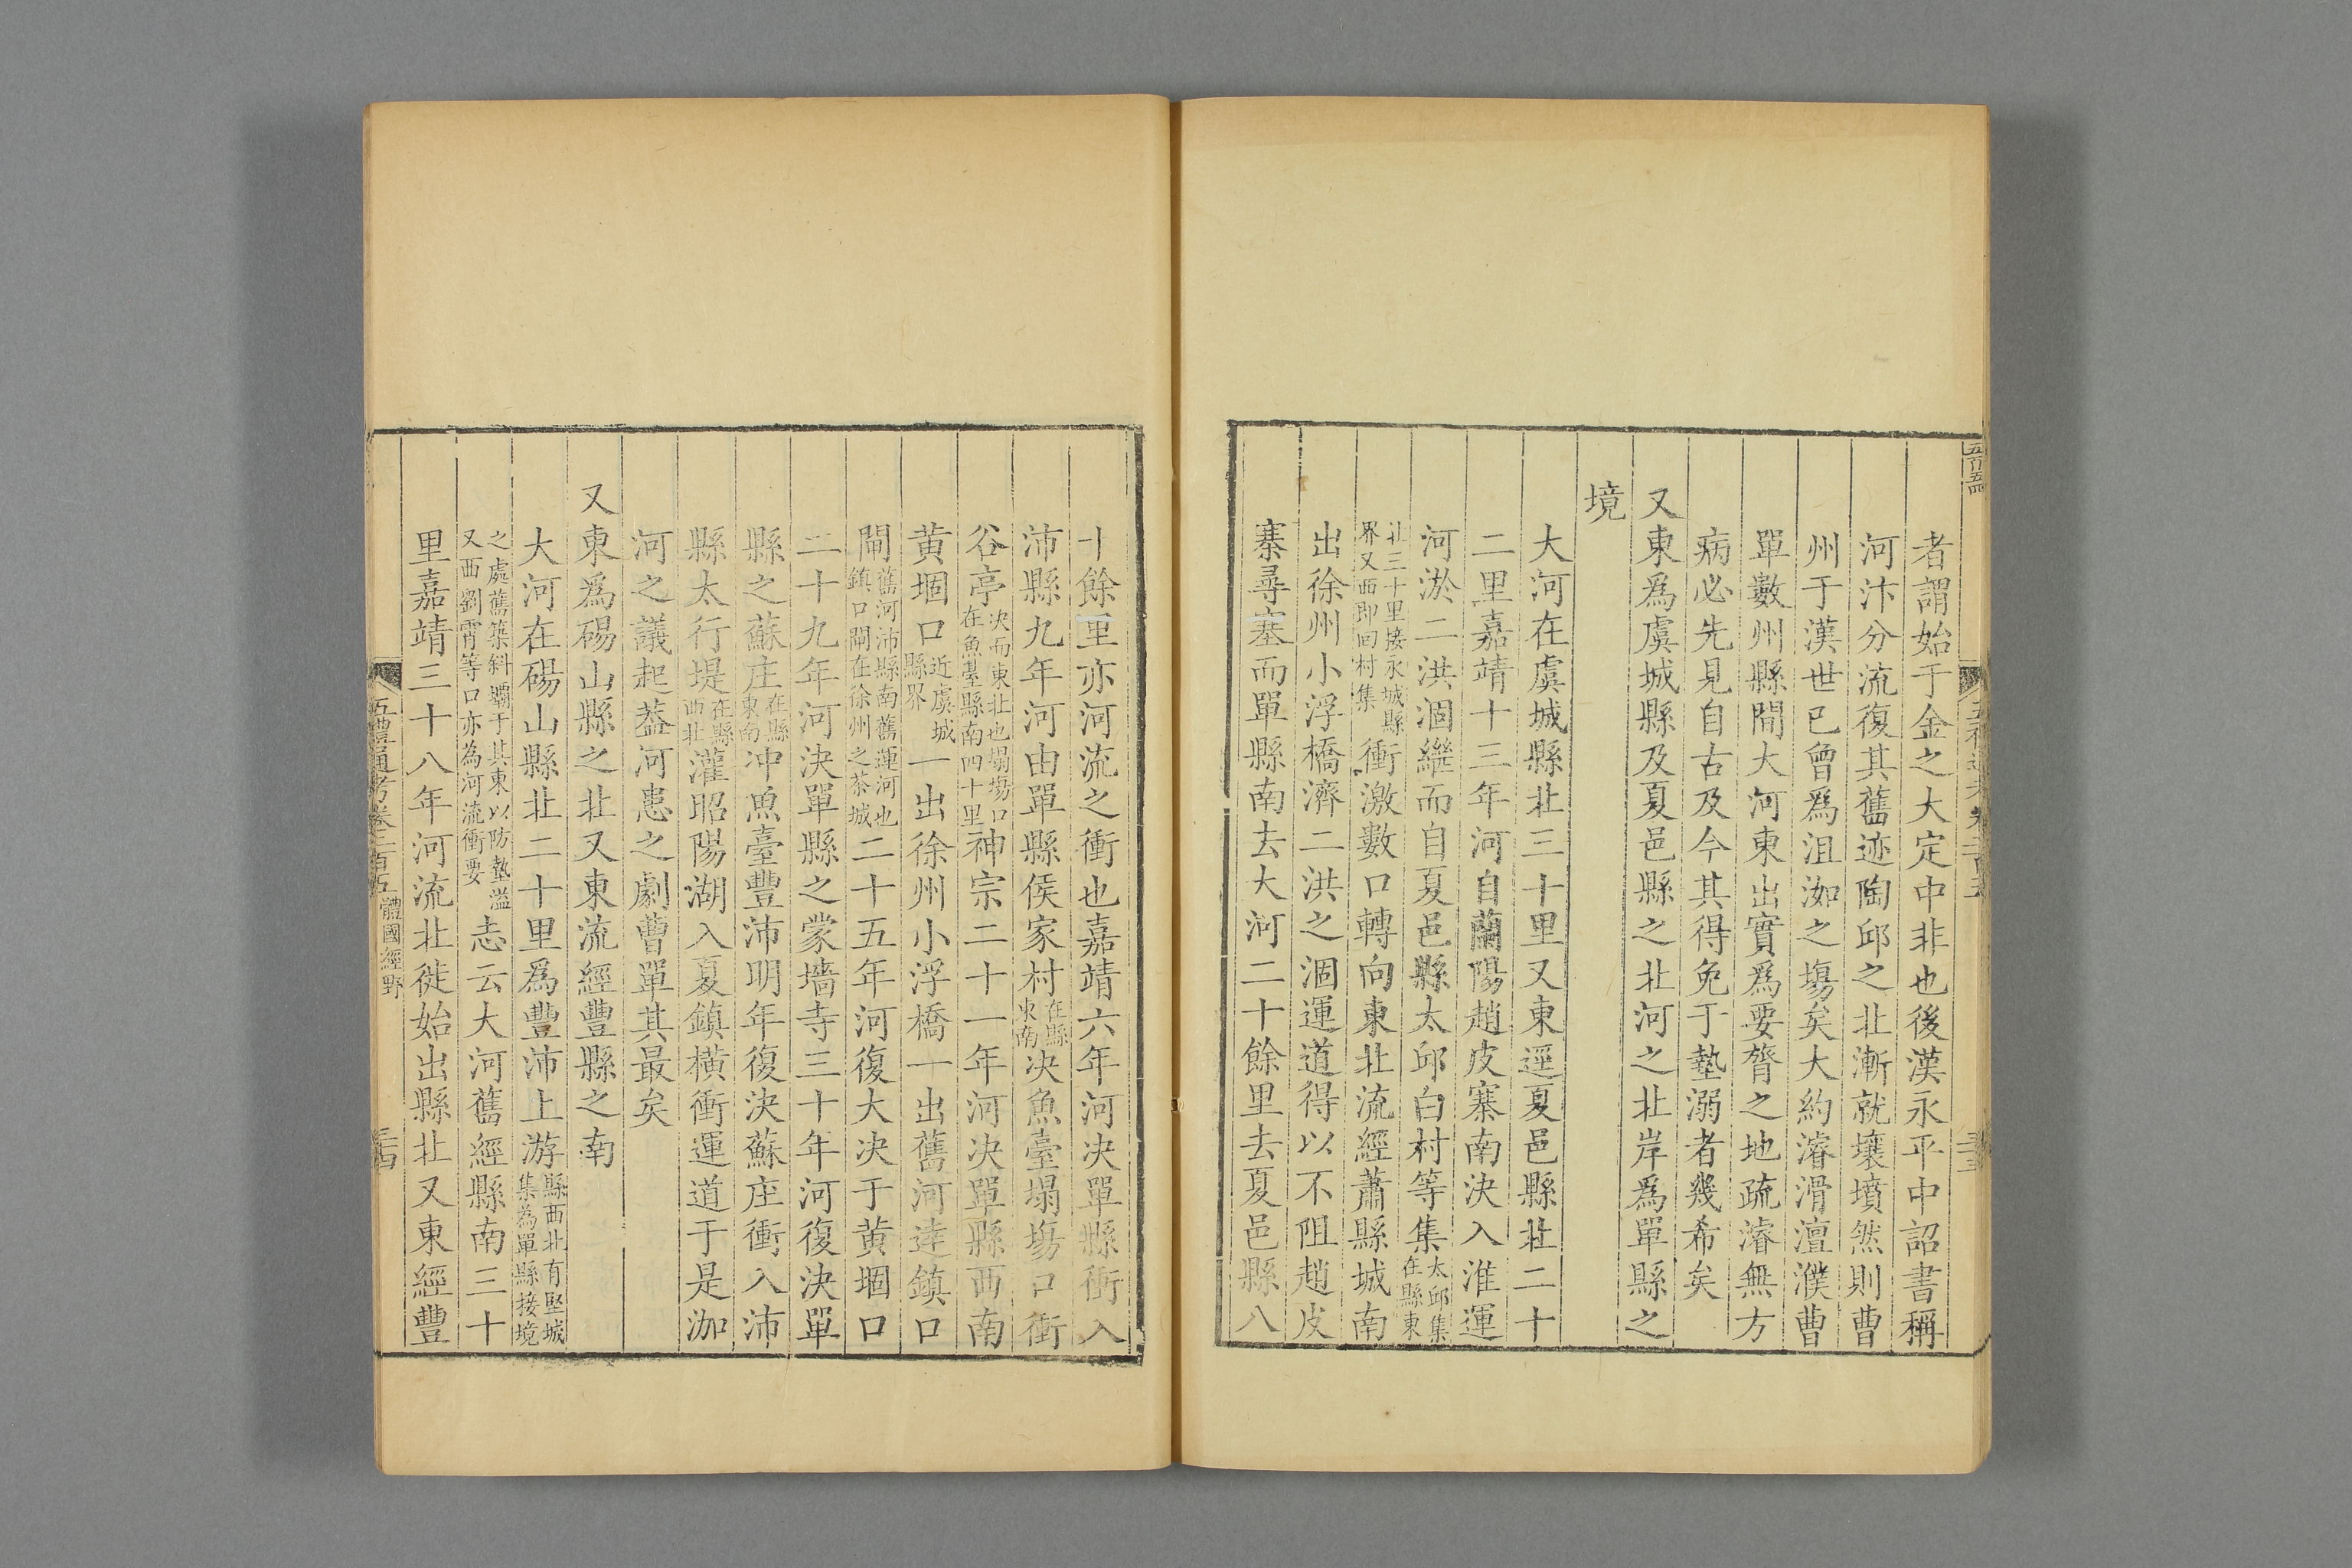 者謂始于金之大定中非也後漢永平中詔書稱
河汴分流復其舊迹陶邱之北漸就壤墳然則曹
州于漢世已曾爲沮洳之塲矣大約濬滑澶濮曹
單數州縣間大河東出實爲要膂之地疏濬無方
病必先見自古及今其得免于墊溺者幾希矣
又東爲虞城縣及夏邑縣之北河之北岸爲單縣之
境
大河在虞城縣北三十里又東逕夏邑縣北二十
二里嘉靖十三年河自蘭陽趙皮寨南決入淮運
河淤二洪涸繼而自夏邑縣太邱白村等集太邱集在縣東
北三十里接永城縣界又西即回村集衝激數口轉向東北流經蕭縣城南
出徐州小浮橋濟二洪之涸運道得以不阻趙皮
寨尋塞而單縣南去大河二十餘里去夏邑縣八
十餘里亦河流之衝也嘉靖六年河決單縣衝入
沛縣九年河由單縣侯家村在縣東南决魚臺塌塲口衝
谷亭决而東北也塌塲口在魚臺縣南四十里神宗二十一年河決單縣西南
黄堌口近虞城縣界一出徐州小浮橋一出舊河達鎮口
閘舊河沛縣南舊運河也鎮口閘在徐州之茶城二十五年河復大決于黄堌口
二十九年河決單縣之蒙墻寺三十年河復決單
縣之蘇庄在縣東南冲魚臺豐沛明年復決蘇庄衝入沛
縣太行堤在縣西北灌昭陽湖入夏鎮橫衝運道于是泇
河之議起葢河患之劇曹單其最矣
又東爲碭山縣之北又東流經豐縣之南
大河在碭山縣北二十里爲豐沛上游縣西北有堅城集為單縣接境
之處舊築斜壩于其東以防墊溢又西劉霄等口亦為河流衝要志云大河舊經縣南三十
里嘉靖三十八年河流北徙始出縣北又東經豐
五禮通考卷二百五 體國經野